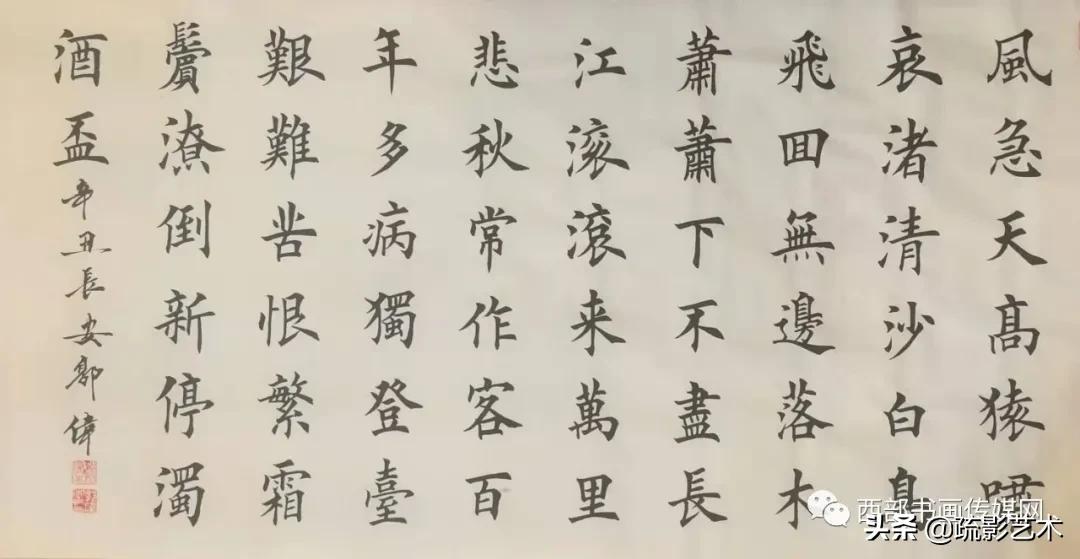 風急天高猿嘯
哀渚清沙白鳥
飛回無邊落木
蕭蕭下不盡長
江滚滾来萬里
悲秋常作客百
年多病獨登臺
艱難苦恨繁霜
鬢潦倒新停濁
酒盃
辛丑長安郭偉
西部书画传媒网
头条 @疏影艺术